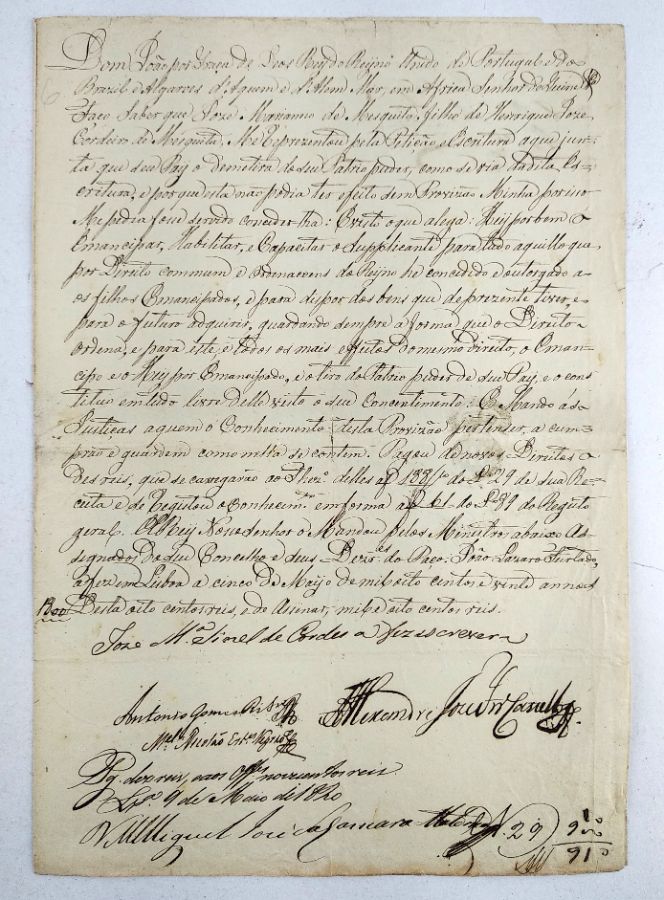 Dom João por Graça de Deos Rey do Reyno Unido de Portugal e do
Brazil e Algarves d'Aquem e d'Alem Mar, em Africa Senhor de Guine &
Faço Saber que Joze Marianno de Mesquita, filho de Henrique Joze
Cordeiro de Mesquita, Me Reprezentou pela Petição e Escritura aqui jun-
ta que seu Pay o demetira do seu Patrio poder, como se via da dita Es-
critura, e porque esta não podia ter efeito sem Provizão Minha por isso
Me pedia foce servido conceder lha: E visto o que alega: Hey por bem
Emancipar, Habilitar, e Capacitar o Supplicante para tado aquillo que
por Direito commum e Ordenacens do Reyno he concedido e outorgado a-
os filhos Emancipados, e para dispor dos bens que de prezente tiver, e
para o futuro adquirir, guardando sempre a forma que o Direito
ordena, e para este, e todos os mais effeitos do mesmo direito, o Eman-
cipo e o Hey por Emancipado, e o tiro do Patrio poder de seu Pay, e o cons
tituo em tudo livre delle visto o seu Concentimento: E Mando ás
Justiças a quem o Conhecimento desta Provizão pertenser, a cum-
prão e guardem como nella se contem. Pagou de novos Direitos
des reis, que se caregarão ao Thez.º delles a f 188 do L.º 29 de sua Re-
ceita e se Registou o Conhecim.to em forma a f 61 do L.º 89 do Registo
geral. ElRey Nosso Senhor o Mandou pelos Ministros abaixo As-
signados do seu Concelho e seus Dezes. do Paço. João Lazaro Furtado
a fez em Lisboa a cinco de Maijo de mil oito centos e vinte annos
1800 Desta oito centos reis, e de Asinar, mil e oito centos reis.
Joze M.ª Sinel de Cordes a fez escrever
Antonio Gomes Ribr.º Alexandre Joze Fr.ª Castello
M.el Nicolão Est.es Negrão
Pg. dez reis, e aos Off.es novecentos reis
Lx.ª 9 de Maio de 1820
Miguel José da Camara 29 900
910